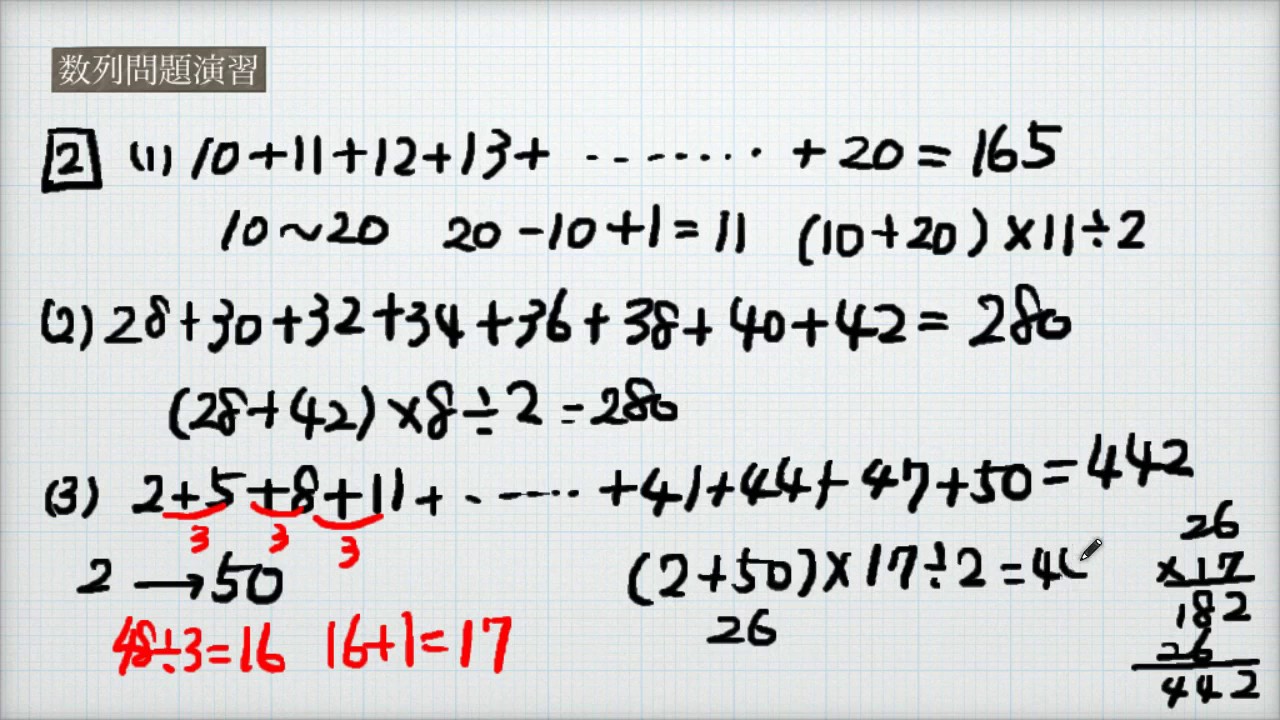 数列問題演習
2 (1) 10+11+12+13+ ········ +20=165
10~20 20-10+1=11 (10+20)×11÷2
(2) 28+30+32+34+36+38+40+42=280
(28+42)×8÷2=280
(3) 2+5+8+11+ ······ +41+44+47+50=442
3 3 3
2 → 50 (2+50)×17÷2=4
26
48÷3=16 16+1=17
26
×17
182
26
442